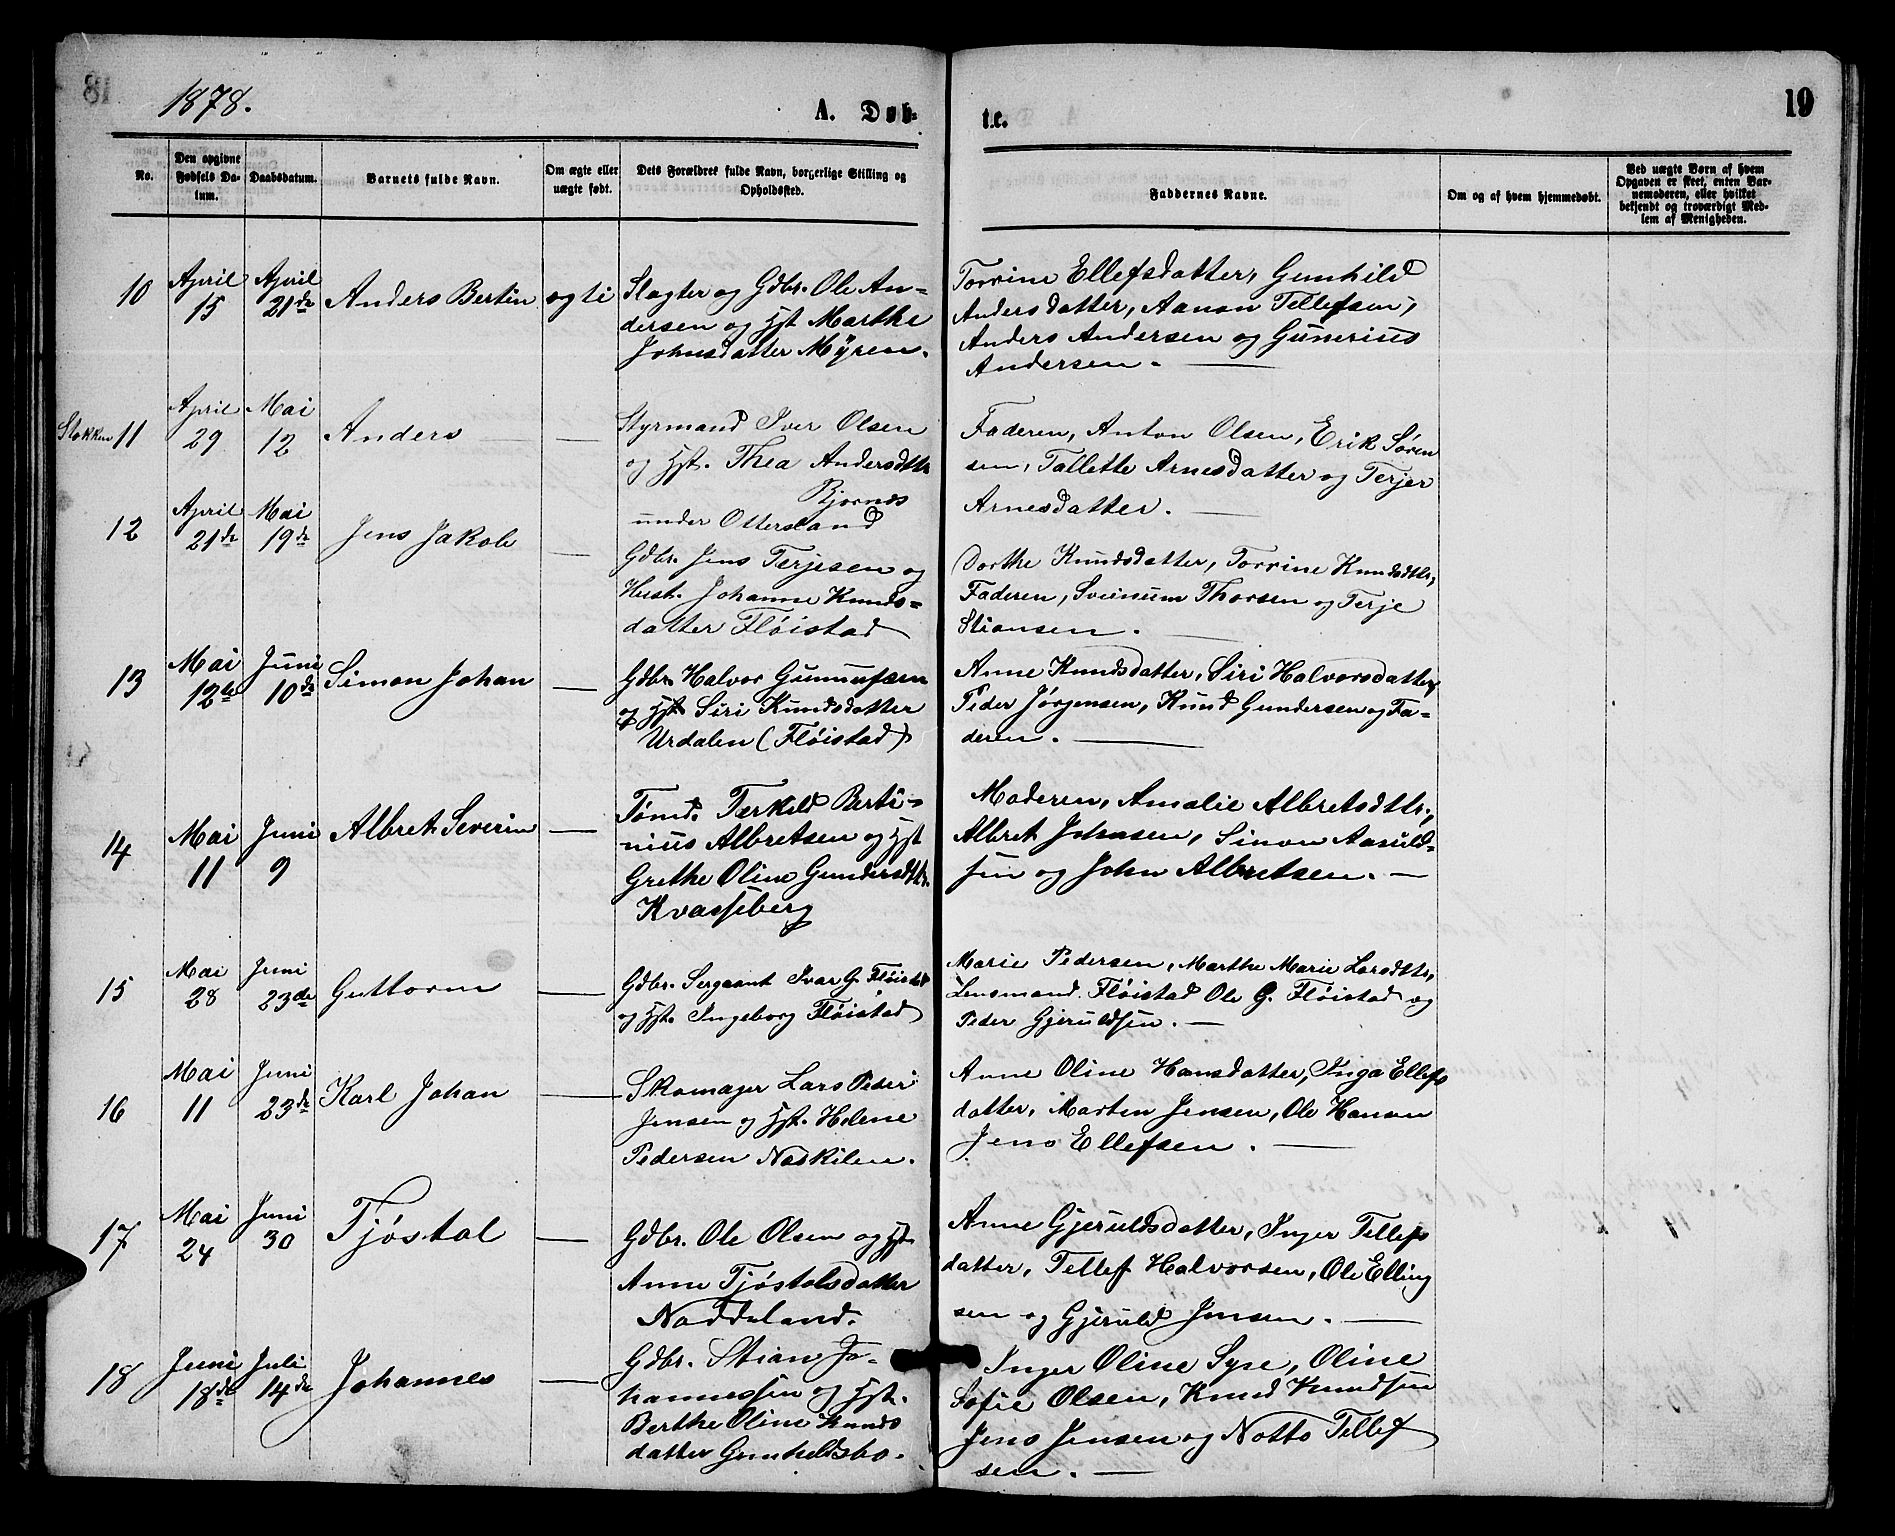 1878.
A. Døb-
te.
19
No.
Den opgivne Fødsels Datum.
Daabsdatum.
Barnets fulde Navn.
Om ægte eller uægte født.
Dets Forældres fulde Navn, borgerlige Stilling og Opholdssted.
Faddernes Navne.
Om og af hvem hjemmedøbt.
Ved uægte Børn af hvem Opgaven er skeet, enten Barnemoderen, eller hvilket bekjendt og troværdigt Medlem af Menigheden.
10 April 15 April 21de Anders Bertin ægti
Slagter og Gdbr. Ole An-
dersen og Hst Marthe
Johnsdatter Myren.
Torrine Ellefsdatter, Gunhild
Andersdatter, Aanon Tellefsen,
Anders Andersen og Gunerius
Andersen. —
Stokken 11 April 29 Mai 12 Anders —
Styrmand Iver Olsen
og Hst. Thea Andersdttr
Bjornes
under Ottersland
Faderen, Anton Olsen, Erik Søren
sen, Tallette Arnesdatter og Terjer
Arnesdatter. —
12 April 21de Mai 19de Jens Jakob —
Gdbr. Jens Terjesen og
Hust. Johanne Knuds-
datter Fløistad
Dorthe Knudsdatter, Torrine Knudsdttr,
Faderen, Sveinum Thorsen og Terje
Stiansen. —
13 Mai 12te Juni 10de Simon Johan —
Gdbr. Halvor Gunnufsen
og Hst Siri Knudsdatter
Urdalen (Fløistad)
Anne Knudsdatter, Siri Halvorsdatter,
Peder Jørgensen, Knud Gundersen og Fa-
deren. —
14 Mai 11 Juni 9 Albret Severin —
Tømd. Terkild Berti-
nius Albretsen og Hst
Grethe Oline Gundersdttr.
Kvasseberg
Moderen, Amalie Albretsdttr.,
Albret Johnsen, Simon Aasuld-
sen og John Albretsen. —
15 Mai 28 Juni 23de Guttorm —
Gdbr. Sergeant Ivar G. Fløistad
og Hst. Ingeborg Fløistad
Marie Pedersen, Marthe Marie Larsdttr,
Lensmand. Fløistad Ole G. Fløistad og
Peder Gjeruldsen. —
16 Mai 11 Juni 23de Karl Johan —
Skomager Lars Peder
Jensen og Hst. Helene
Pedersen Naskilen.
Anne Oline Hansdatter, Inga Ellefs
datter, Morten Jensen, Ole Hansen
Jens Ellefsen. —
17 Mai 24 Juni 30 Tjøstal —
Gdbr. Ole Olsen og Hst
Anne Tjøstalsdatter
Naddeland.
Anne Gjeruldsdatter, Inger Tellefs
datter, Tellef Halvorsen, Ole Elling
sen og Gjeruld Jensen. —
18 Juni 18de Juli 14de Johannes —
Gdbr. Stian Jo-
hannessen og Hst.
Berthe Oline Knuds
datter Gunheldsbo.
Inger Oline Syse, Oline
Sofie Olsen, Knud Knudsen
Jens Jensen og Notto Tellef
sen. —